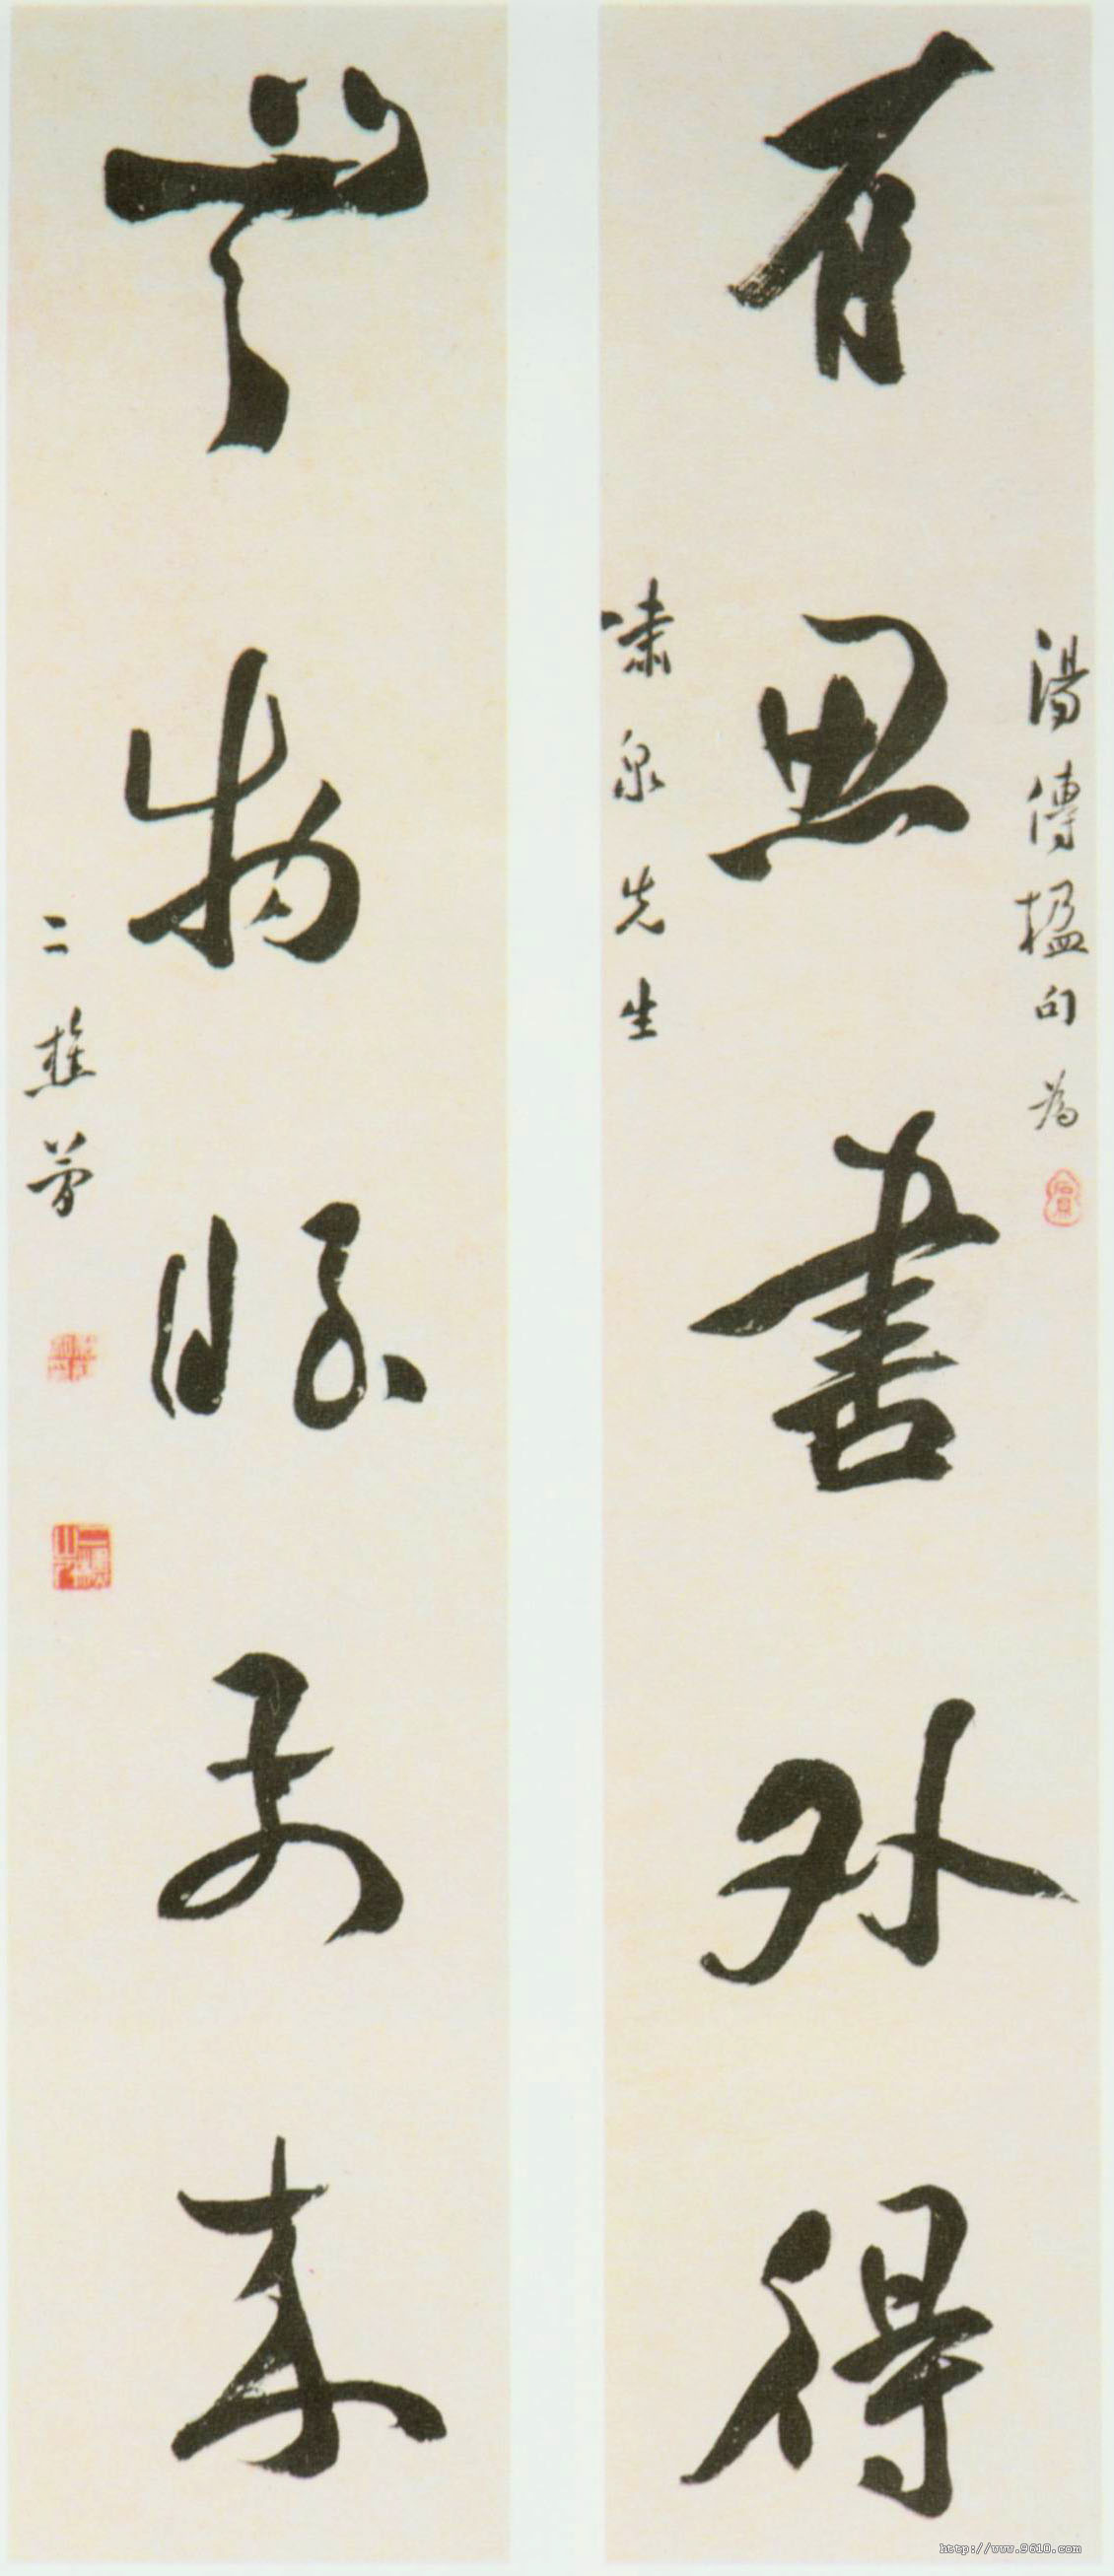 有思書外得
湯傳楹句為
嘯泉先生
無物來
二樵簡
http://www.9610.com